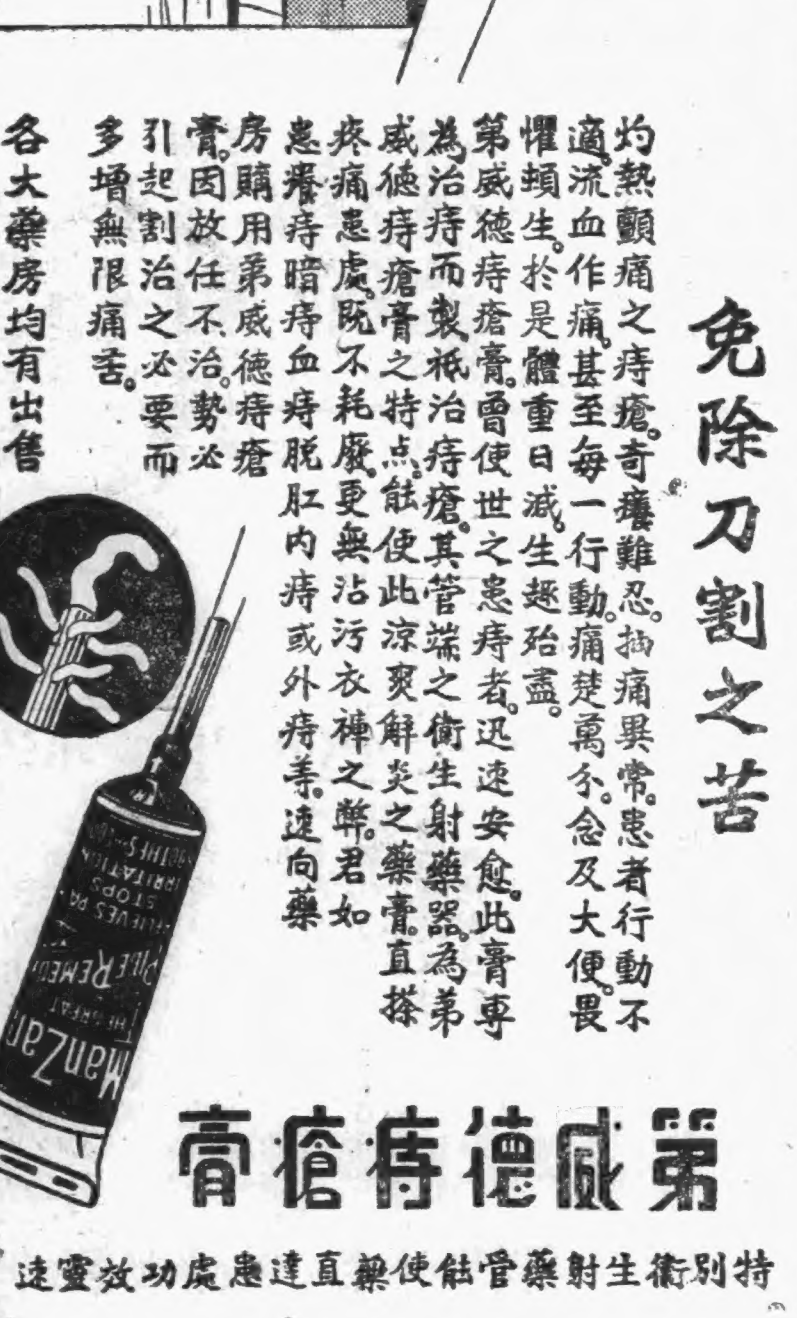 免除刀割之苦
灼熱顫痛之痔瘡。奇癢難忍。抽痛異常。患者行動不
適。流血作痛。甚至每一行動。痛楚萬分。念及大便。畏
懼頓生。於是體重日減。生趣殆盡。
第威德痔瘡膏。曾使世之患痔者。迅速安愈。此膏專
為治痔而製。祇治痔瘡。其管端之衛生射藥器。為第
威德痔瘡膏之特点。能使此涼爽解炎之藥膏。直搽
疼痛患處。既不耗廢。更無沾污衣褲之弊。君如
患癢痔暗痔血痔脱肛内痔或外痔等。速向藥
房購用第威德痔瘡
膏。因放任不治。勢必
引起割治之必要而
多增無限痛苦。
各大藥房均有出售
ManZan
THE GREAT
PILE REMEDY
RELIEVES PA
STOPS
IRRITATION
第威德痔瘡膏
特別衛生射藥管能使藥直達患處功效靈速